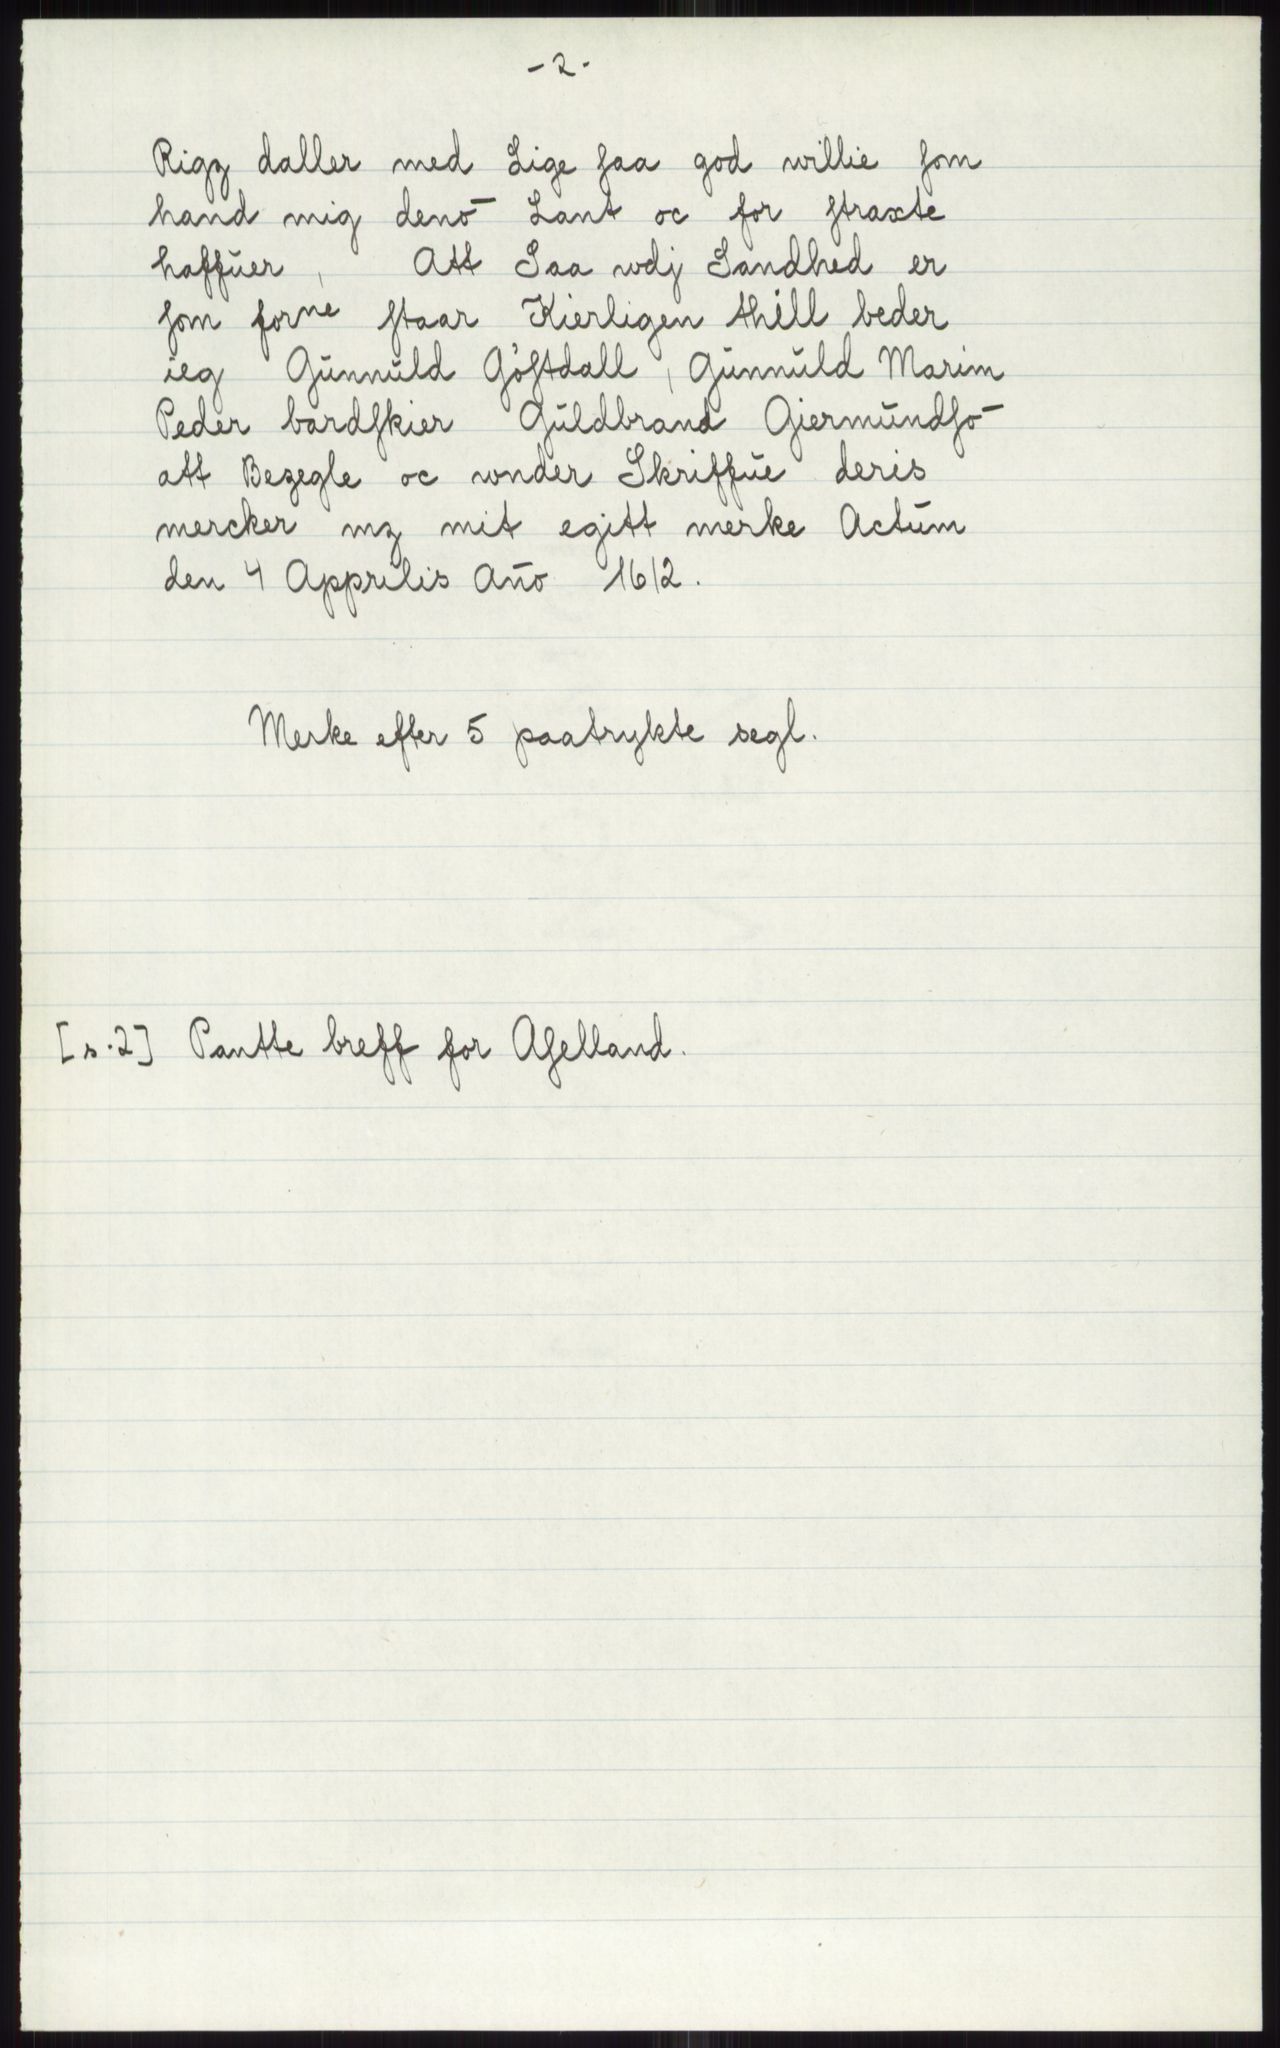 - 2 -
Rigz daller med Lige saa god willie som
hand mig denō Lant oc for straxte
haffŭer, Att Saa wdj Sandhed er
som forne staar Kierligen thill beder
ieg Gŭnnŭld Gŏstdall, Gŭnnŭld Marim
Peder bardskier Gŭldbrand Giermŭndsō
att Bezegle oc wnder Skriffŭe deris
mercker mz mit egitt merke Actŭm
den 4 Apprilis Año 1612.
Merke efter 5 paatrykte segl.
[s. 2] Pantte breff for Aselland.